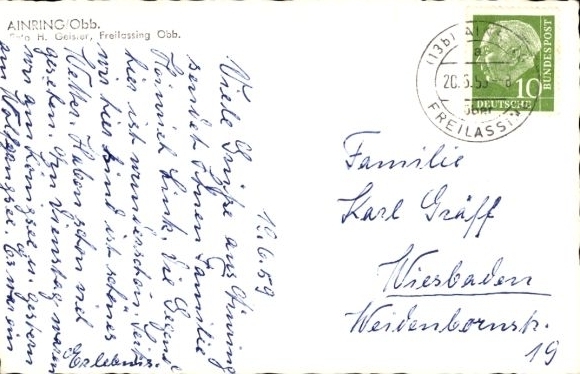 AINRING/Obb.
Foto H. Geisler, Freilassing Obb.
19.6.59
Viele Grüße aus Ainring
sendet Ihnen Familie
Heinrich Link. Die Gegend
hier ist wunderschön. Seit
wir hier sind ist schönes
Wetter. Haben schon viel
gesehen. Am Dienstag waren
wir am Königsee u. gestern
am Wolfgangsee. Es war ein
Erlebnis.
(13b)
20.6.59
FREILASSING
10
DEUTSCHE
BUNDESPOST
Familie
Karl Gräff
Wiesbaden
Weidenbornstr.
19